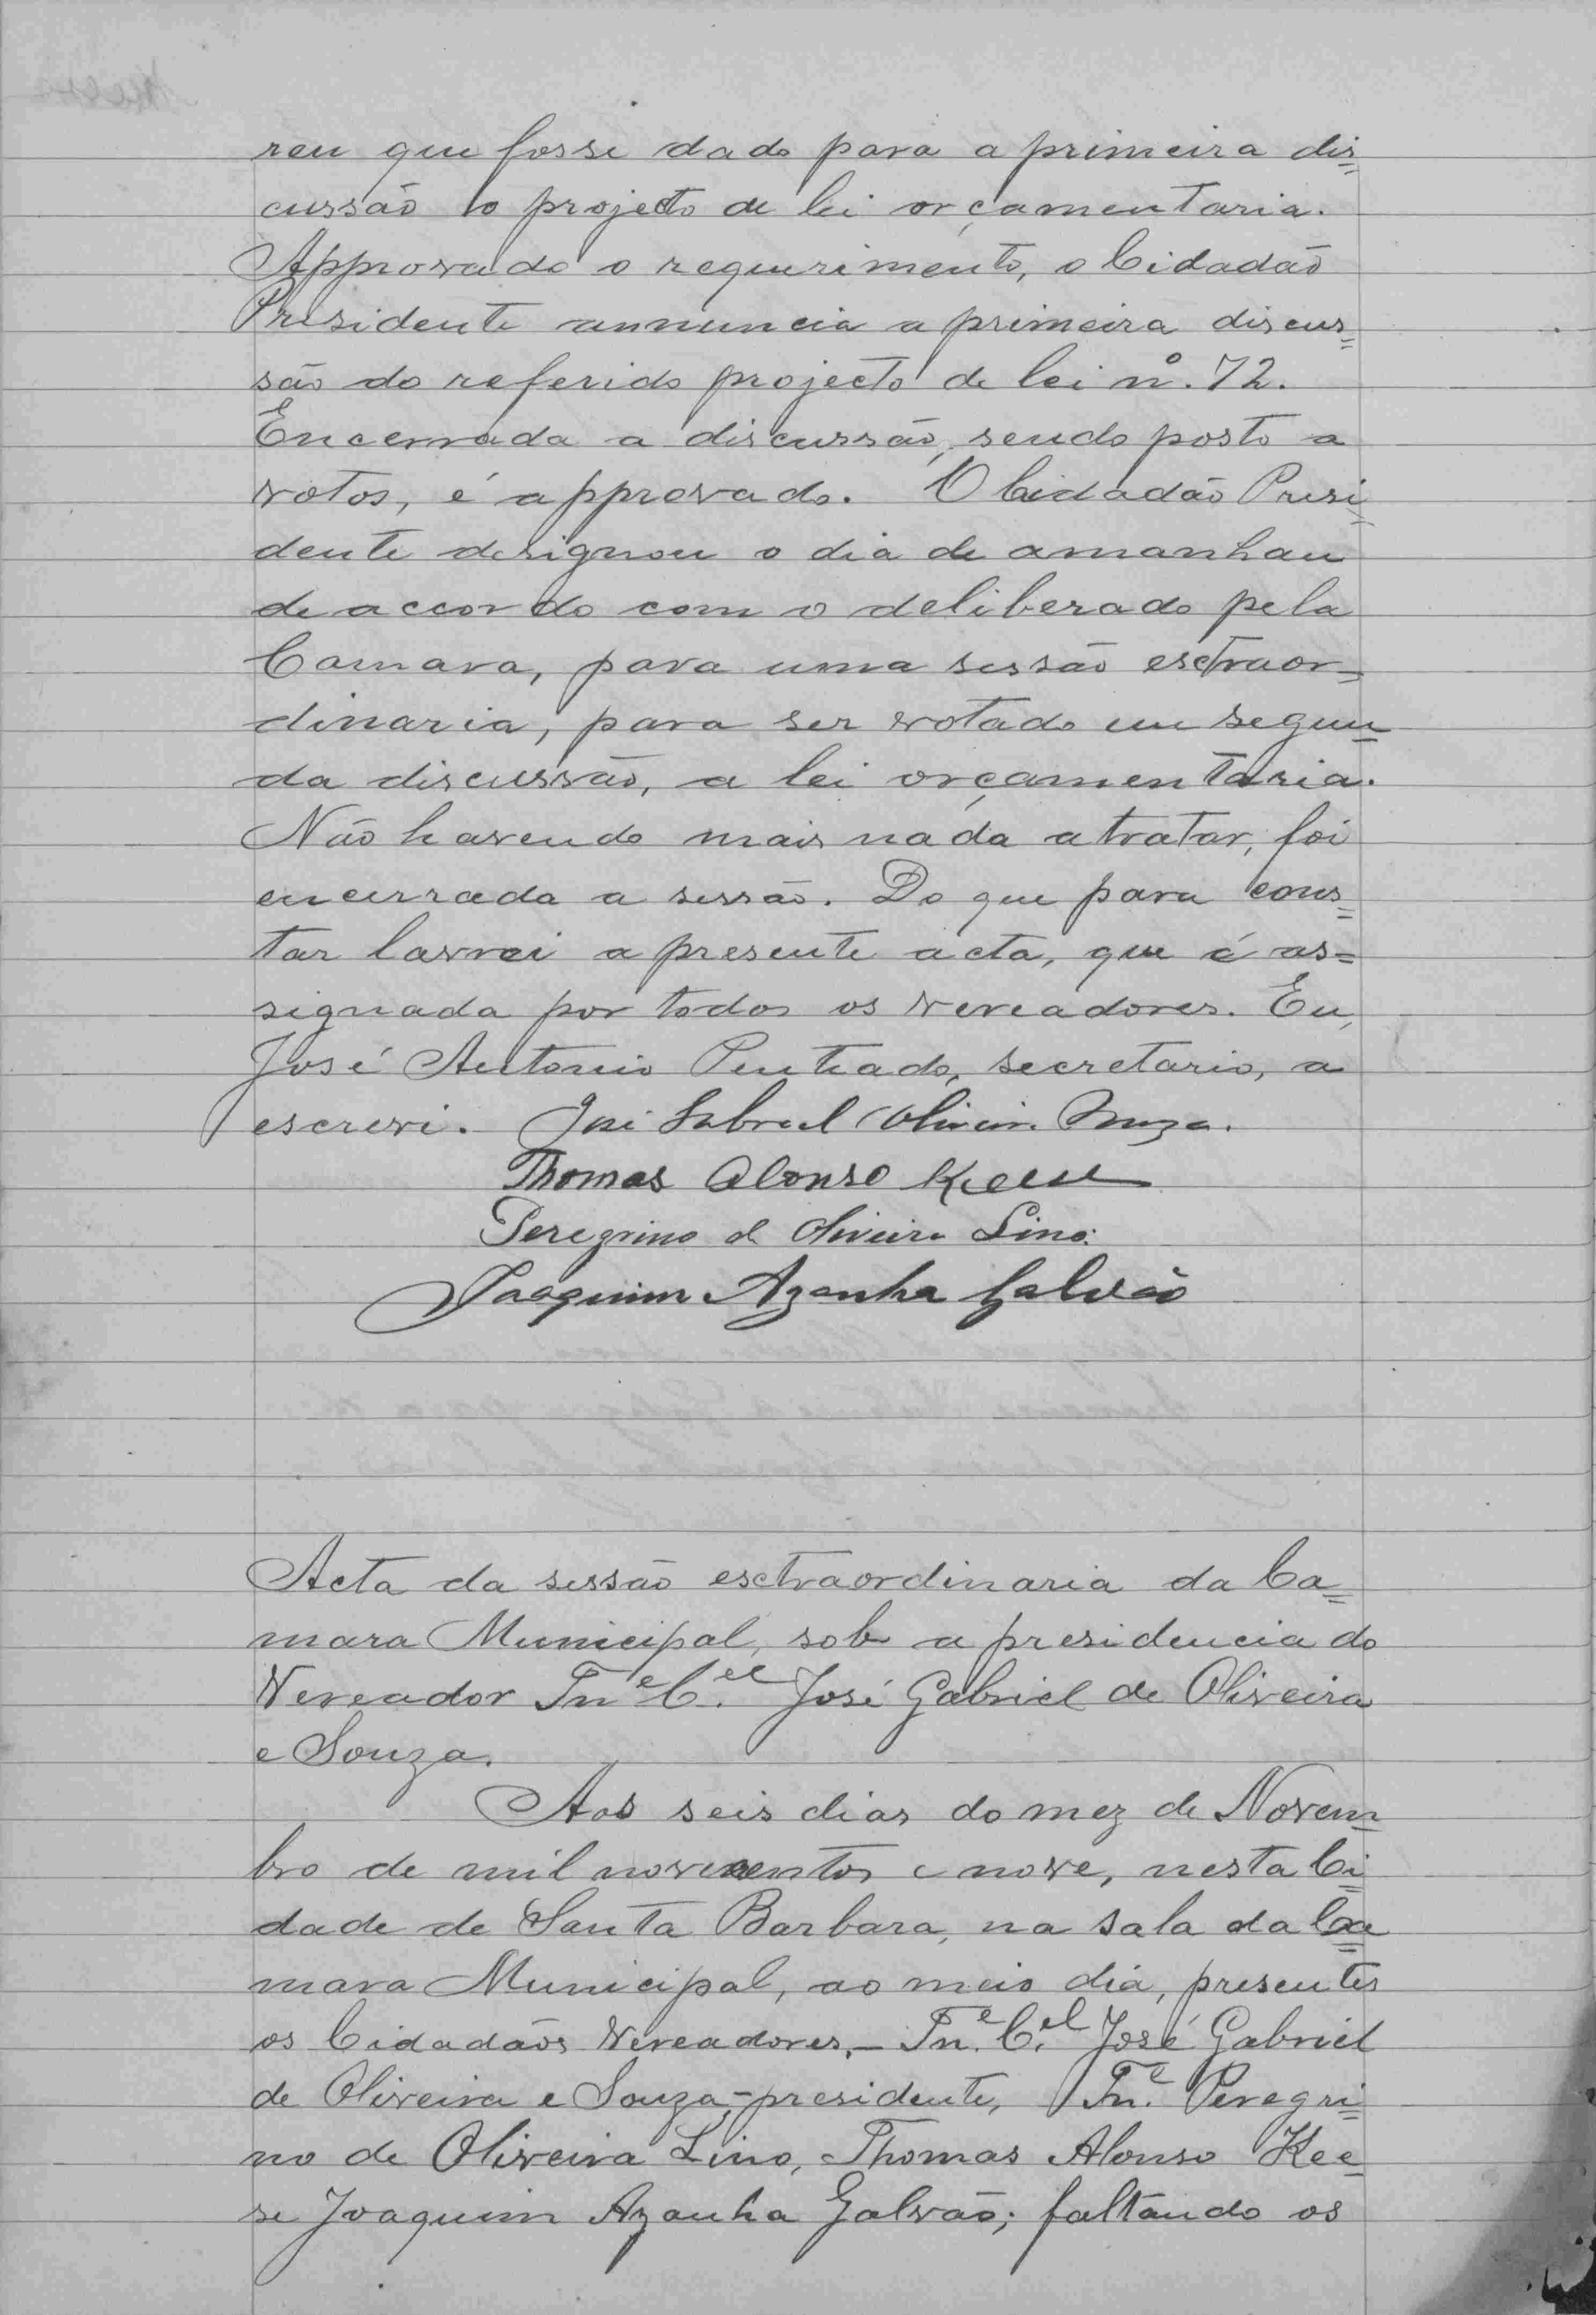 reu que fosse dado para a primeira dis=
cussão o projecto de lei orçamentaria.
Approvado o requerimento, o Cidadão
Presidente annuncia a primeira discus=
são do referido projecto de lei nº. 72.
Encerrada a discussão, sendo posto a
votos, é approvado. O Cidadão Presi=
dente designou o dia de amanhan
de accordo com o deliberado pela
Camara, para uma sessão esctraor=
dinaria, para ser votado em segun=
da discussão, a lei orçamentaria.
Não havendo mais nada a tratar, foi
encerrada a sessão. Do que para cons=
tar lavrei a presente acta, que é as=
signada por todos os Vereadores. Eu,
José Antonio Penteado, secretario, a
escrevi. José Gabriel Oliveira Souza.
Thomas Alonso Keese
Peregrino de Oliveira Lino.
Joaquim Azanha Galvão
Acta da sessão esctraordinaria da Ca=
mara Municipal, sob a presidencia do
Vereador Tne Cel. José Gabriel de Oliveira
e Souza.
Aos seis dias do mez de Novem=
bro de mil novecentos e nove, nesta Ci=
dade de Santa Barbara, na sala da Ca=
mara Municipal, ao meio dia, presentes
os Cidadãos Vereadores,– Tne. Cel. José Gabriel
de Oliveira e Souza,–presidente, Tne. Peregri=
no de Oliveira Lino, Thomas Alonso Kee=
se Joaquim Azanha Galvão; faltando os